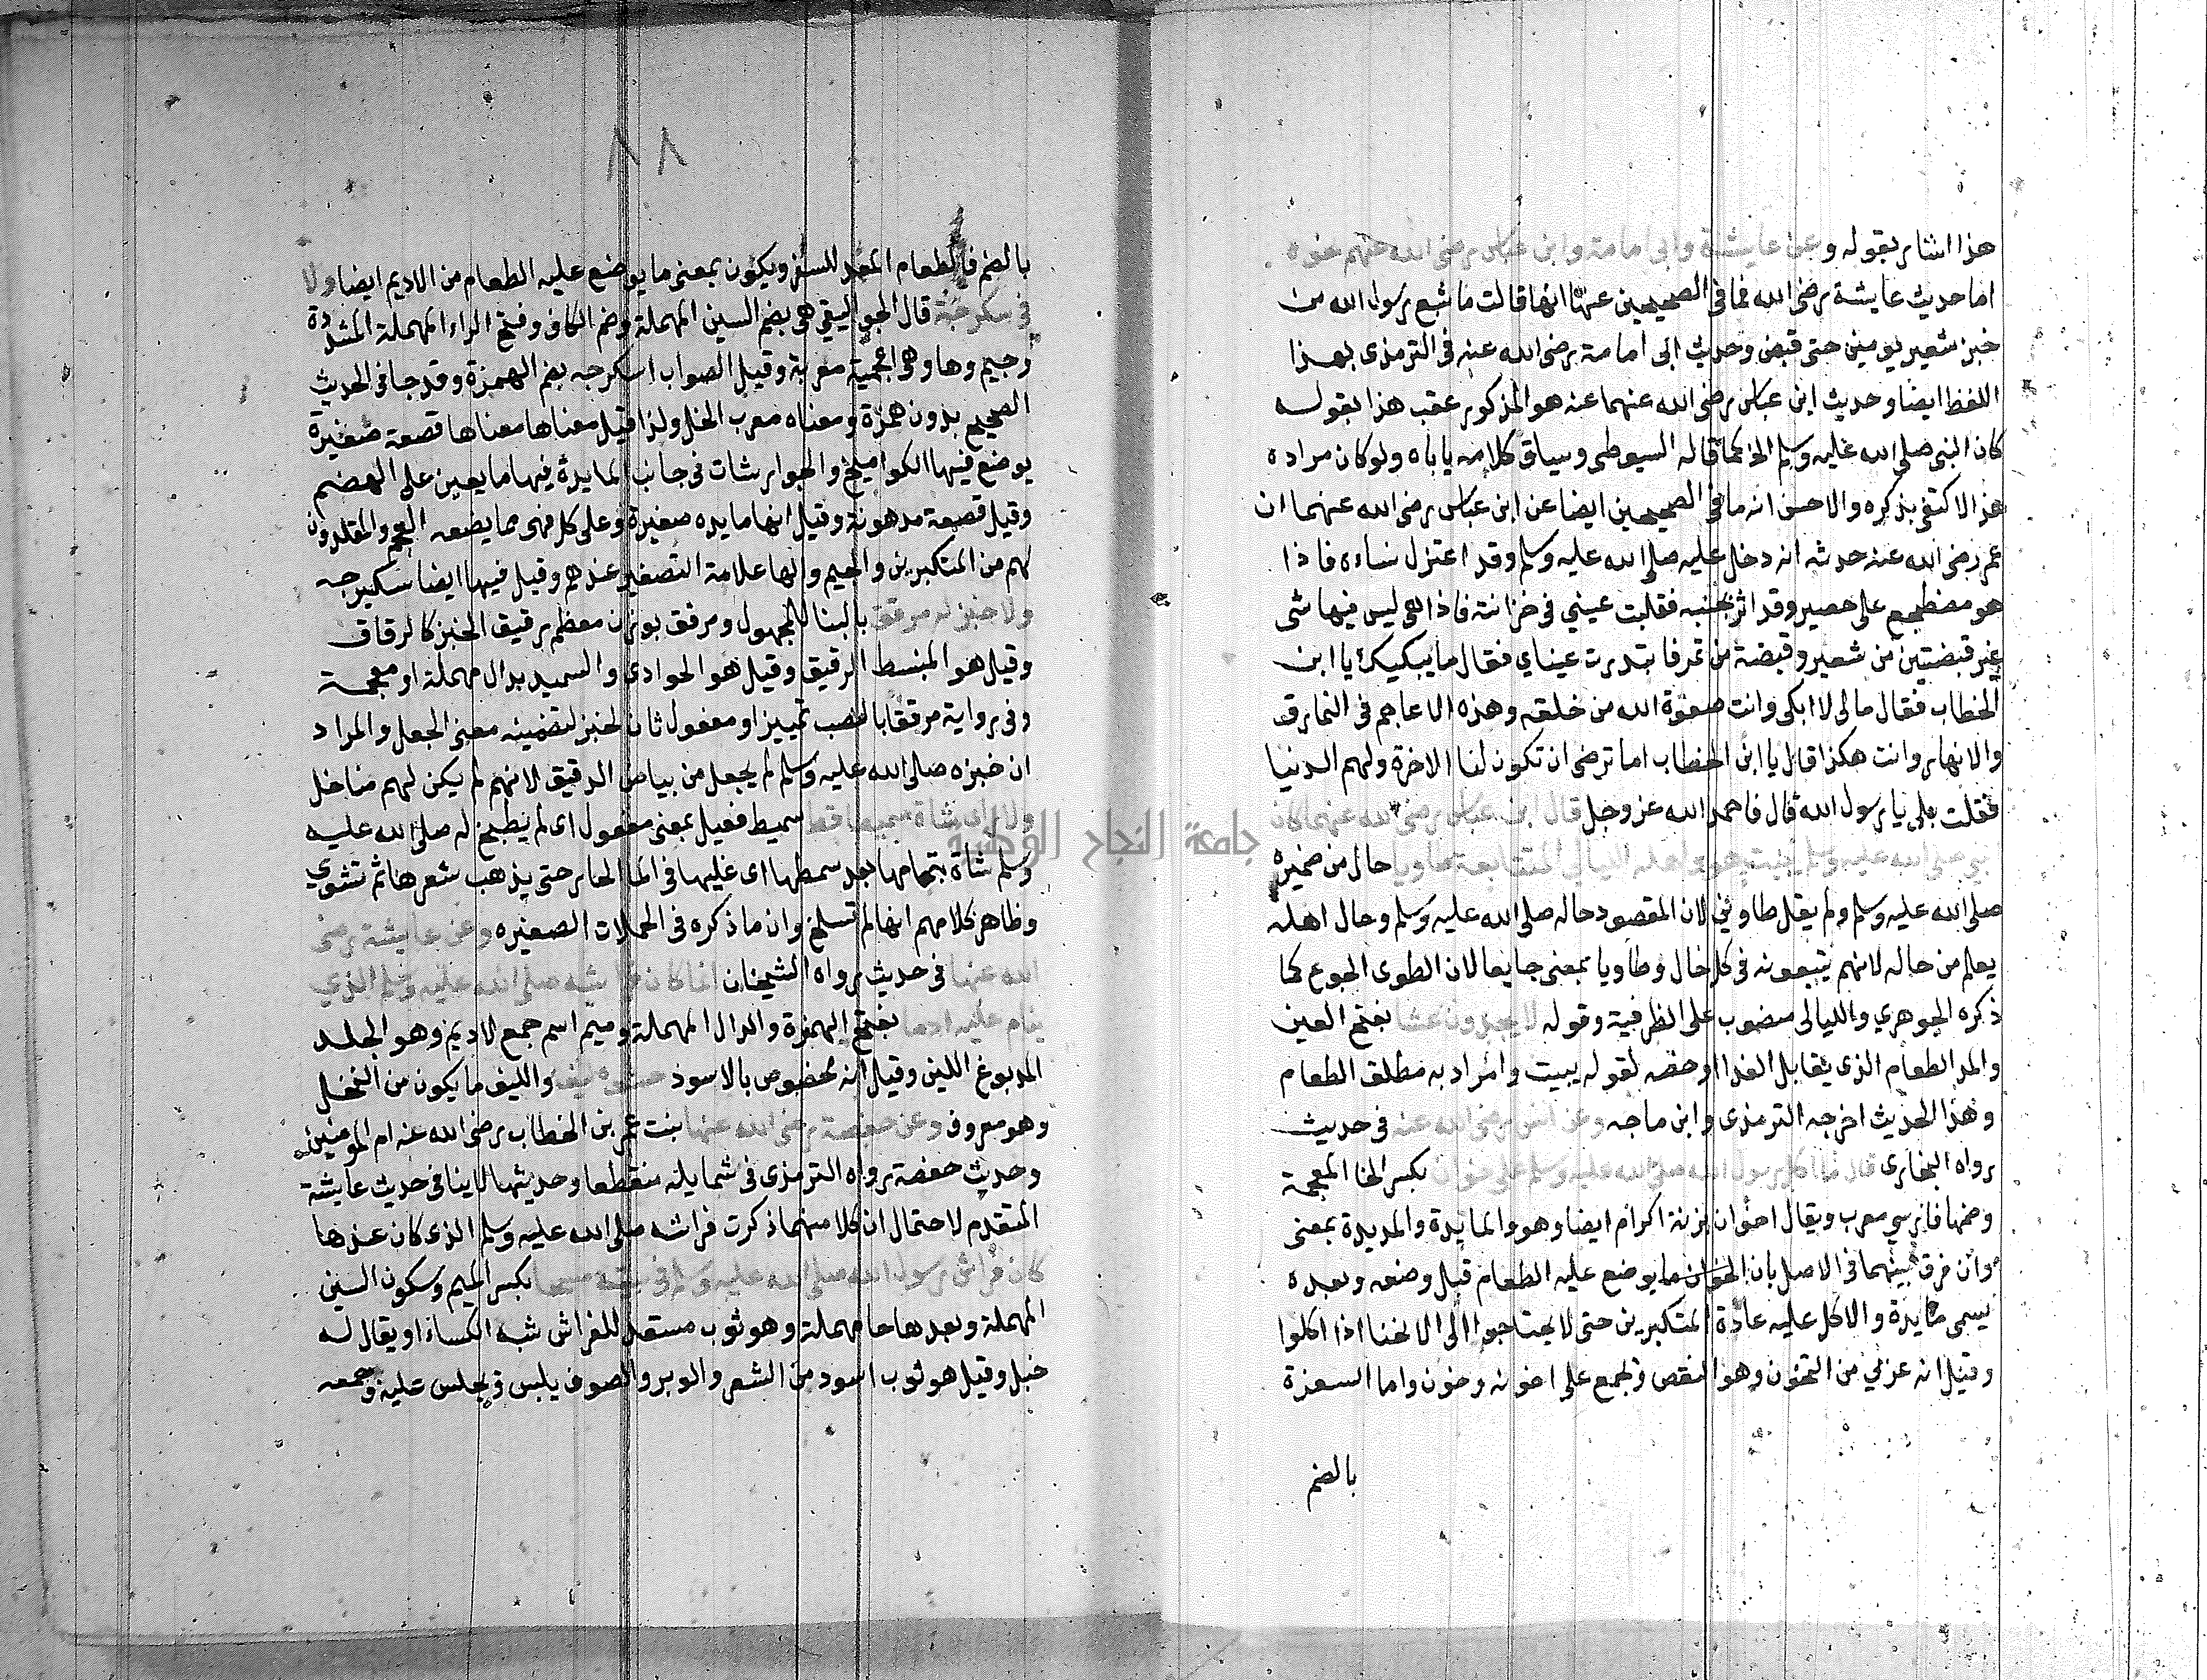 هذا اشار بقوله وعن عايشة وابى امامة وابن عباس رضى الله عنهم نحوه
اما حديث عايشة رضى الله فما فى الصحيحين عنها انها قالت ما شبع رسول الله من
خبز شعير يومين حتى قبض وحديث ابى امامة رضى الله عنه فى الترمذى بهذا
اللفظ ايضا وحديث ابن عباس رضى الله عنهما عنه هو المذكور عقب هذا بقوله
كان النبى صلى الله عليه وسلم الخ كما قاله السيوطى وسياق كلامه ياباه ولو كان مراده
هذا لاكتفى بذكره والاحسن انه ما فى الصحيحين ايضا عن ابن عباس رضى الله عنهما ان
عمر رضى الله عنه حدثه انه دخل عليه صلى الله عليه وسلم وقد اعتزل نساءه فاذا
هو مضطجع على حصير وقد اثر بجنبه فقلبت عينى فى خزانته فاذا هى ليس فيها شى
غير قبضتين من شعير وقبضة من تمر فابتدرت عيناى فقال ما يبكيك يا ابن
الخطاب فقال مالى لا ابكى وانت صفوة الله من خلقه وهذه الاعاجم فى الثمار قد
والانهار وانت هكذا قال يا ابن الخطاب اما ترضى ان تكون لنا الاخرة ولهم الدنيا
فقلت بلى يا رسول الله قال فاحمد الله عز وجل قال ابن عباس رضى الله عنهما كان
النبى صلى الله عليه وسلم يبيت هو واهله الليالى المتتابعة طاويا حال من ضميره
صلى الله عليه وسلم ولم يقل طاوين لان المقصود حاله صلى الله عليه وسلم وحال اهله
يعلم من حاله لانهم يتبعونه فى كل حال وطاويا بمعنى جايعا لان الطوى الجوع كما
ذكره الجوهري والليالى منصوب على الظرفية وقوله لا يجدون عشا بفتح العين
والمد الطعام الذى يقابل الغدا وخصه لقوله يبيت واراد به مطلق الطعام
وهذا الحديث اخرجه الترمذى وابن ماجه وعن انس رضى الله عنه فى حديث
رواه البخارى قال ما اكل رسول الله صلى الله عليه وسلم على خوان بكسر الخا المعجمة
وضمها فارسي معرب ويقال اخوان بزنة اكرام ايضا وهو والمايدة والمديدة بمعنى
وان فرق بينهما فى الاصل بان الخوان ما يوضع عليه الطعام قبل وضعه وبعده
يسمى مايدة والاكل عليه عادة المتكبرين حتى لا يحتاجوا الى الانحنا اذا اكلوا
وقيل انه عربي من التخون وهو النقص ويجمع على اخونه وخون واما السفرة
بالضم
٨٨
بالضم فالطعام المعد للسفر ويكون بمعنى ما يوضع عليه الطعام من الاديم ايضا ولا
فى سكرجة قال الجواليقى هى بضم السين المهملة وضم الكاف وفتح الراء المهملة المشددة
وجيم وها وهى اعجمية معربة وقيل الصواب اسكرجه بضم الهمزة وقد جا فى الحديث
الصحيح بدون همزة ومعناه معرب الخل ولذا قيل معناها معناها قصعة صغيرة
يوضع فيها الكواميخ والجوارشات فى جانب المايدة فيها ما يعين على الهضم
وقيل قصعة مدهونة وقيل انها مايده صغيرة وعلى كل فهى مما يضعه العجم والمقلدون
لهم من المتكبرين والجيم والها علامة التصغير عندهم وقيل فيها ايضا سكيرجه
ولا خبز له مرقق بالبنا للمجهول ومرقق بوزن معظم رقيق الخبز كالرقاق
وقيل هو المنبسط الرقيق وقيل هو الحوادى والسميد بدال مهملة او معجمة
وفى رواية مرققا بالنصب تمييز او مفعول ثان لخبز لتضمينه معنى الجعل والمراد
ان خبزه صلى الله عليه وسلم لم يجعل من بياض الدقيق لانهم لم يكن لهم مناخل
ولا راى شاة سميطا قط سميط فعيل بمعنى مفعول اى لم يطبخ له صلى الله عليه
وسلم شاة بتمامها بعد سمطها اى غليها فى الما الحار حتى يذهب شعرها ثم تشوي
وظاهر كلامهم انها لم تسلخ وان ما ذكره فى الحملات الصغيره وعن عايشة رضى
الله عنها فى حديث رواه الشيخان انما كان فراشه صلى الله عليه وسلم الذي
ينام عليه ادما بفتح الهمزة والدال المهملة وميم اسم جمع لاديم وهو الجلد
المدبوغ اللين وقيل انه مخصوص بالاسود حشوه ليف والليف ما يكون من النخل
وهو معروف وعن حفصة رضى الله عنها بنت عمر بن الخطاب رضى الله عنه ام المومنين
وحديث حفصة رواه الترمذى فى شمايله منقطعا وحديثها لا ينافى حديث عايشة
المتقدم لاحتمال ان كلا منهما ذكرت فراشه صلى الله عليه وسلم الذى كان عندها
كان فراش رسول الله صلى الله عليه وسلم فى بيته مسحا بكسر الميم وسكون السين
المهملة وبعدها حا مهملة وهو ثوب مستعد للفراش شبه الكساء او يقال له
خبل وقيل هو ثوب اسود من الشعر والوبر والصوف يلبس ويجلس عليه وجمعه
جامعة النجاح الوطنية